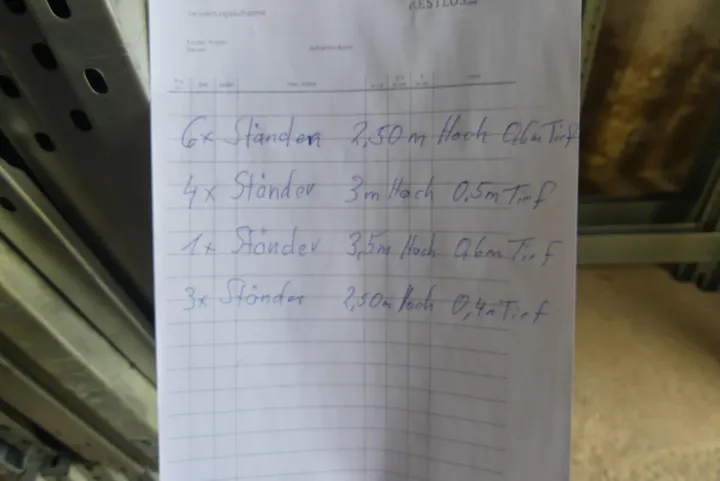 RESTLOS
6x Ständer 2,50m Hoch 0,6m Tief
4x Ständer 3m Hoch 0,5m Tief
1x Ständer 3,5m Hoch 0,6m Tief
3x Ständer 2,50m Hoch 0,4m Tief